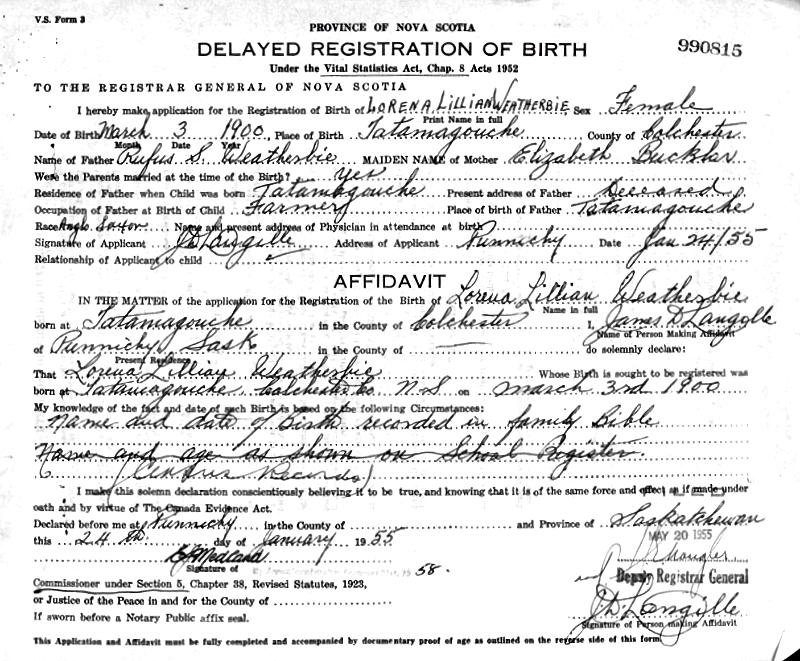 V.S. Form 3
PROVINCE OF NOVA SCOTIA
DELAYED REGISTRATION OF BIRTH
990815
Under the Vital Statistics Act, Chap. 8 Acts 1952
TO THE REGISTRAR GENERAL OF NOVA SCOTIA
I hereby make application for the Registration of Birth of LORENA LILLIAN WEATHERBIE Sex Female
Print Name in full
Date of Birth March 3 1900 Place of Birth Tatamagouche County of Colchester
Month Date Year
Name of Father Rufus S. Weatherbie MAIDEN NAME of Mother Elizabeth Bucklar
Were the Parents married at the time of the Birth? yes
Residence of Father when Child was born Tatamagouche Present address of Father Deceased
Occupation of Father at Birth of Child Farmer Place of birth of Father Tatamagouche
Race Anglo Saxon Name and present address of Physician in attendance at birth
Signature of Applicant J D Langille Address of Applicant Punnichy Date Jan 24/55
Relationship of Applicant to child
AFFIDAVIT
IN THE MATTER of the application for the Registration of the Birth of Lorena Lillian Weatherbie
Name in full
born at Tatamagouche in the County of Colchester I, James D Langille
Name of Person Making Affidavit
of Punnichy Sask in the County of — do solemnly declare:
Present Residence
That Lorena Lillian Weatherbie Whose Birth is sought to be registered was
born at Tatamagouche Colchester Co N-S on march 3rd 1900
My knowledge of the fact and date of such Birth is based on the following Circumstances:
Name and date of Birth recorded in family Bible
Name and age as shown on School Register.
(Census Records)
I make this solemn declaration conscientiously believing it to be true, and knowing that it is of the same force and effect as if made under
oath and by virtue of The Canada Evidence Act.
Declared before me at Punnichy in the County of and Province of Saskatchewan
this 24 th day of January 1955
MAY 20 1955
Signature of
58.
Deputy Registrar General
Commissioner under Section 5, Chapter 38, Revised Statutes, 1923,
or Justice of the Peace in and for the County of
J. D. Langille
If sworn before a Notary Public affix seal.
Signature of Person making Affidavit
This Application and Affidavit must be fully completed and accompanied by documentary proof of age as outlined on the reverse side of this form